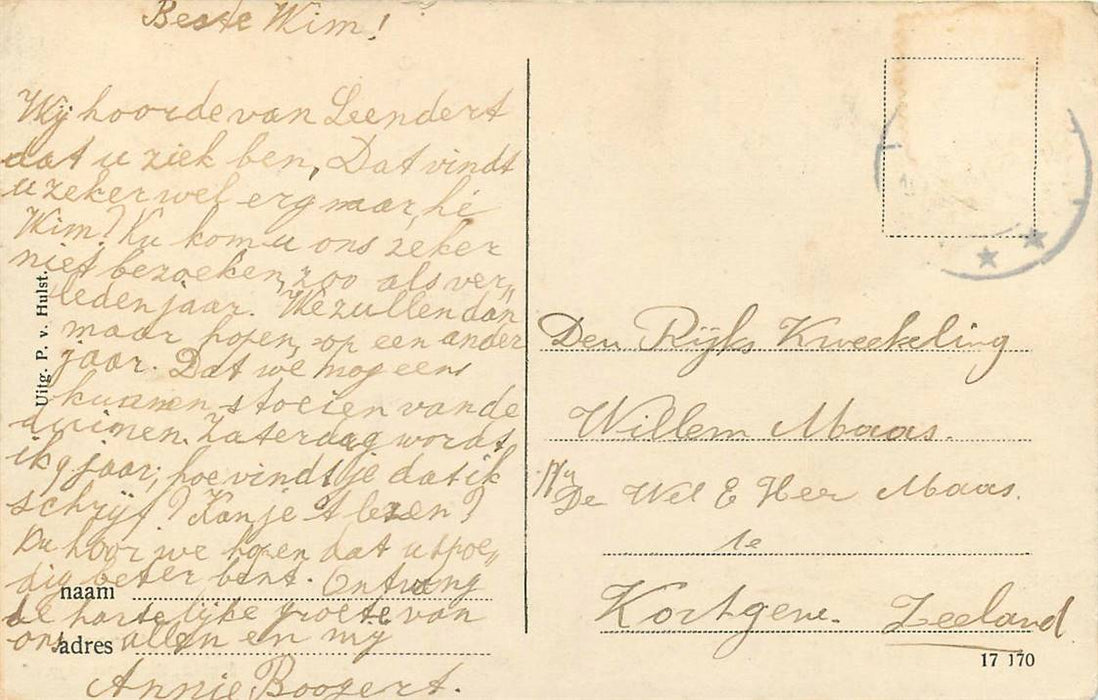 Beste Wim!
Wij hoorde van Leendert
dat u ziek ben, Dat vindt
u zeker wel erg naar, hé
Wim? Nu kom u ons zeker
niet bezoeken, zoo als ver„
leden jaar. We zullen dan
maar hopen, op een ander
jaar. Dat we nog eens
kunnen stoeien van de
duinen. Zaterdag wordt
ik 9 jaar, hoe vindt je dat ik
schrijf? Kan je 't lezen?
Nu hoor we hopen dat u spoe„
dig beter bent. Ontvang
de hartelijke groete van
ons allen en my
Annie Boogert.
Uitg. P. v. Hulst.
naam
adres
Den Rijks Kweekeling
Willem Maas.
De Wel E Heer Maas.
te
Kortgene. Zeeland
17 170